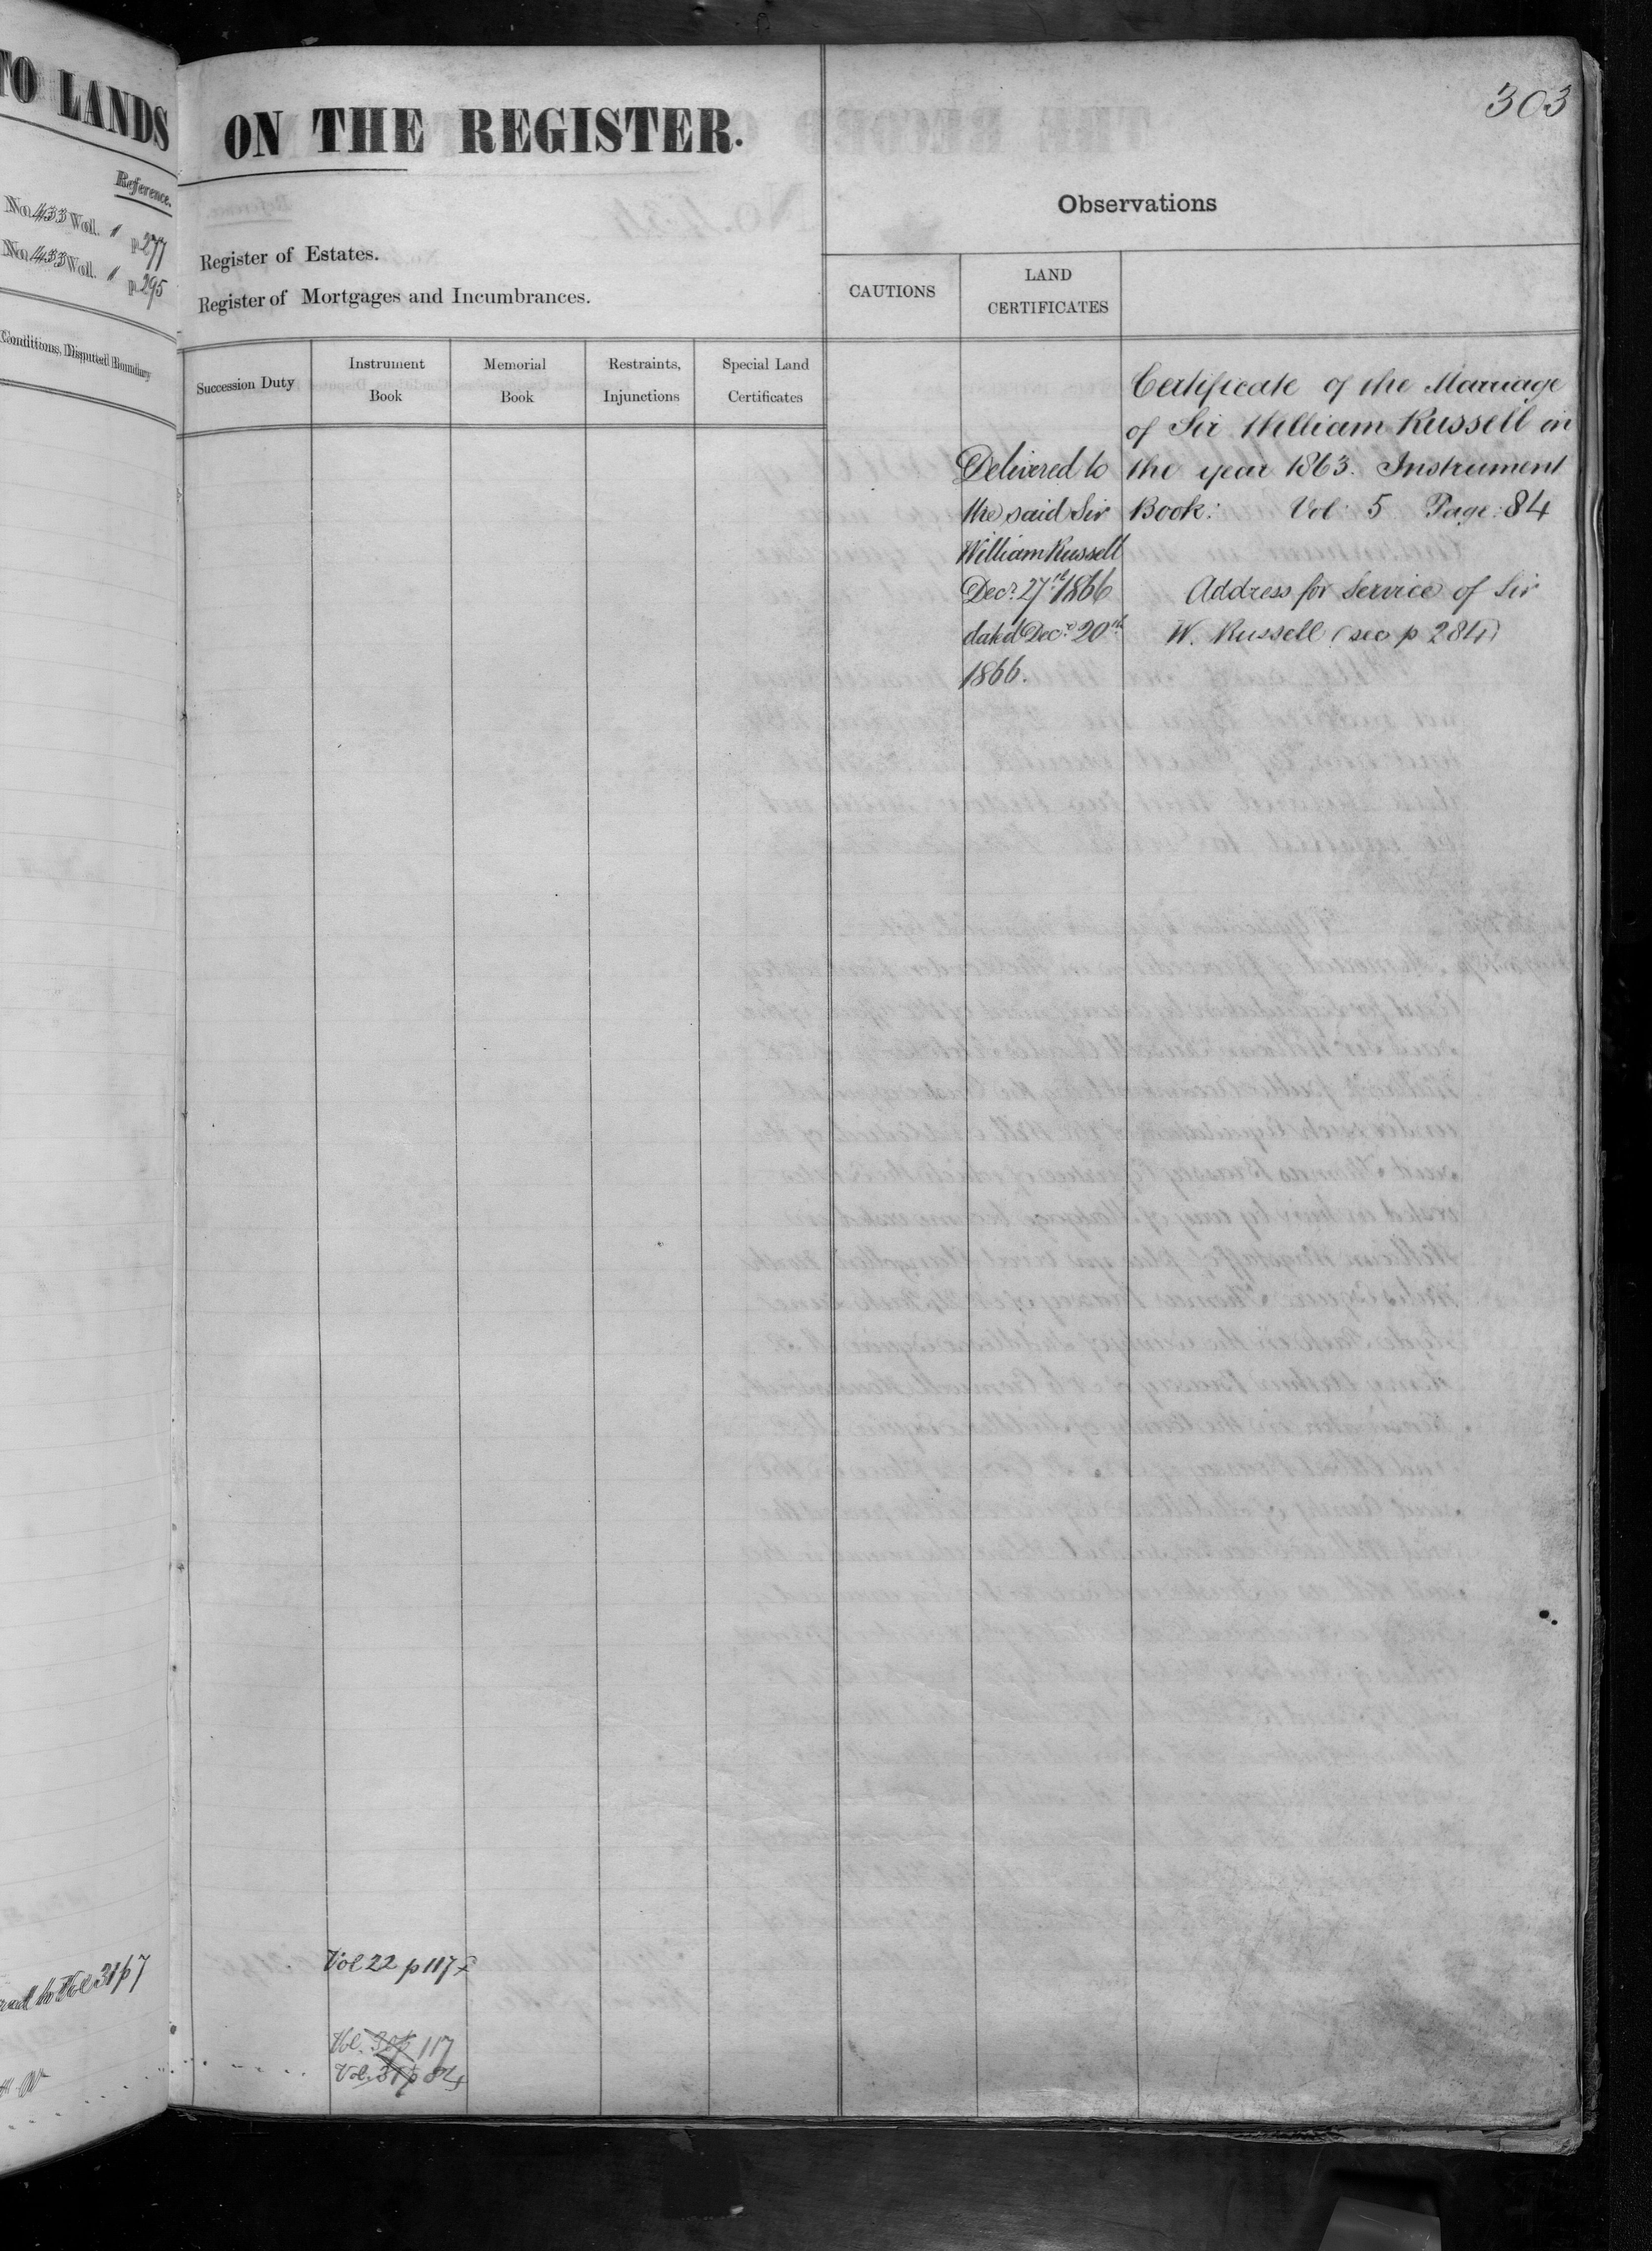 TO LANDS
Reference.
No. 433 Vol. 1 p 277
No. 433 Vol. 1 p 295
Conditions, Disputed Boundary
Vol 31 p 7
303
ON THE REGISTER.
Register of Estates.
Register of Mortgages and Incumbrances.
Succession Duty
Instrument
Book
Memorial
Book
Restraints,
Injunctions
Special Land
Certificates
Vol 22 p 117
Vol. 117
Vol. 31 p 84
Observations
CAUTIONS
LAND
CERTIFICATES
Delivered to
the said Sir
William Russell
Decr. 27th 1866
dated Decr. 20th
1866.
Certificate of the Marriage
of Sir William Russell in
the year 1863. Instrument
Book: Vol: 5 Page: 84
Address for Service of Sir
W. Russell (see p 284)